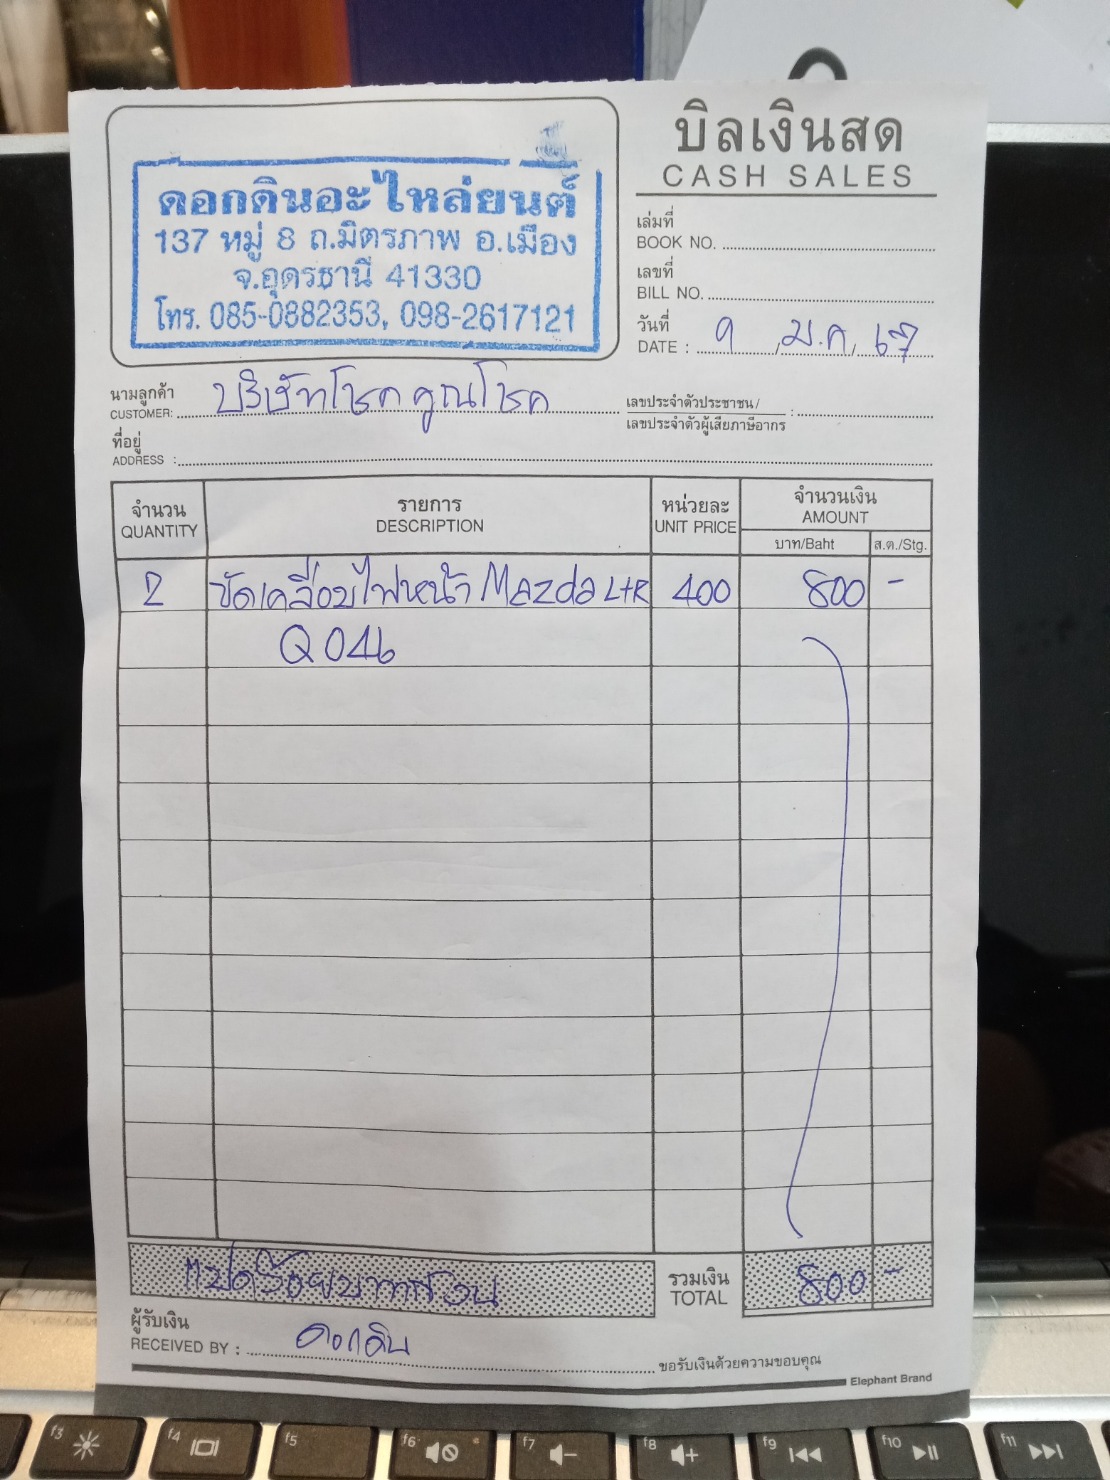 ดอกดินอะไหล่ยนต์
137 หมู่ 8 ถ.มิตรภาพ อ.เมือง
จ.อุดรธานี 41330
โทร. 085-0882353, 098-2617121
บิลเงินสด
CASH SALES
เล่มที่
BOOK NO.
เลขที่
BILL NO.
วันที่
DATE : 9 ม.ค. 67
นามลูกค้า
CUSTOMER: บริษัทโชคคูณโชค
เลขประจำตัวประชาชน/
เลขประจำตัวผู้เสียภาษีอากร :
ที่อยู่
ADDRESS :
จำนวน รายการ หน่วยละ จำนวนเงิน
QUANTITY DESCRIPTION UNIT PRICE AMOUNT
บาท/Baht ส.ต./Stg.
2 ขัดเคลือบไฟหน้า Mazda L+R 400 800 -
Q046
แปดร้อยบาทถ้วน รวมเงิน TOTAL 800 -
ผู้รับเงิน
RECEIVED BY : ดอกดิน
ขอรับเงินด้วยความขอบคุณ
Elephant Brand
f3 f4 f5 f6 f7 f8 f9 f10 f11